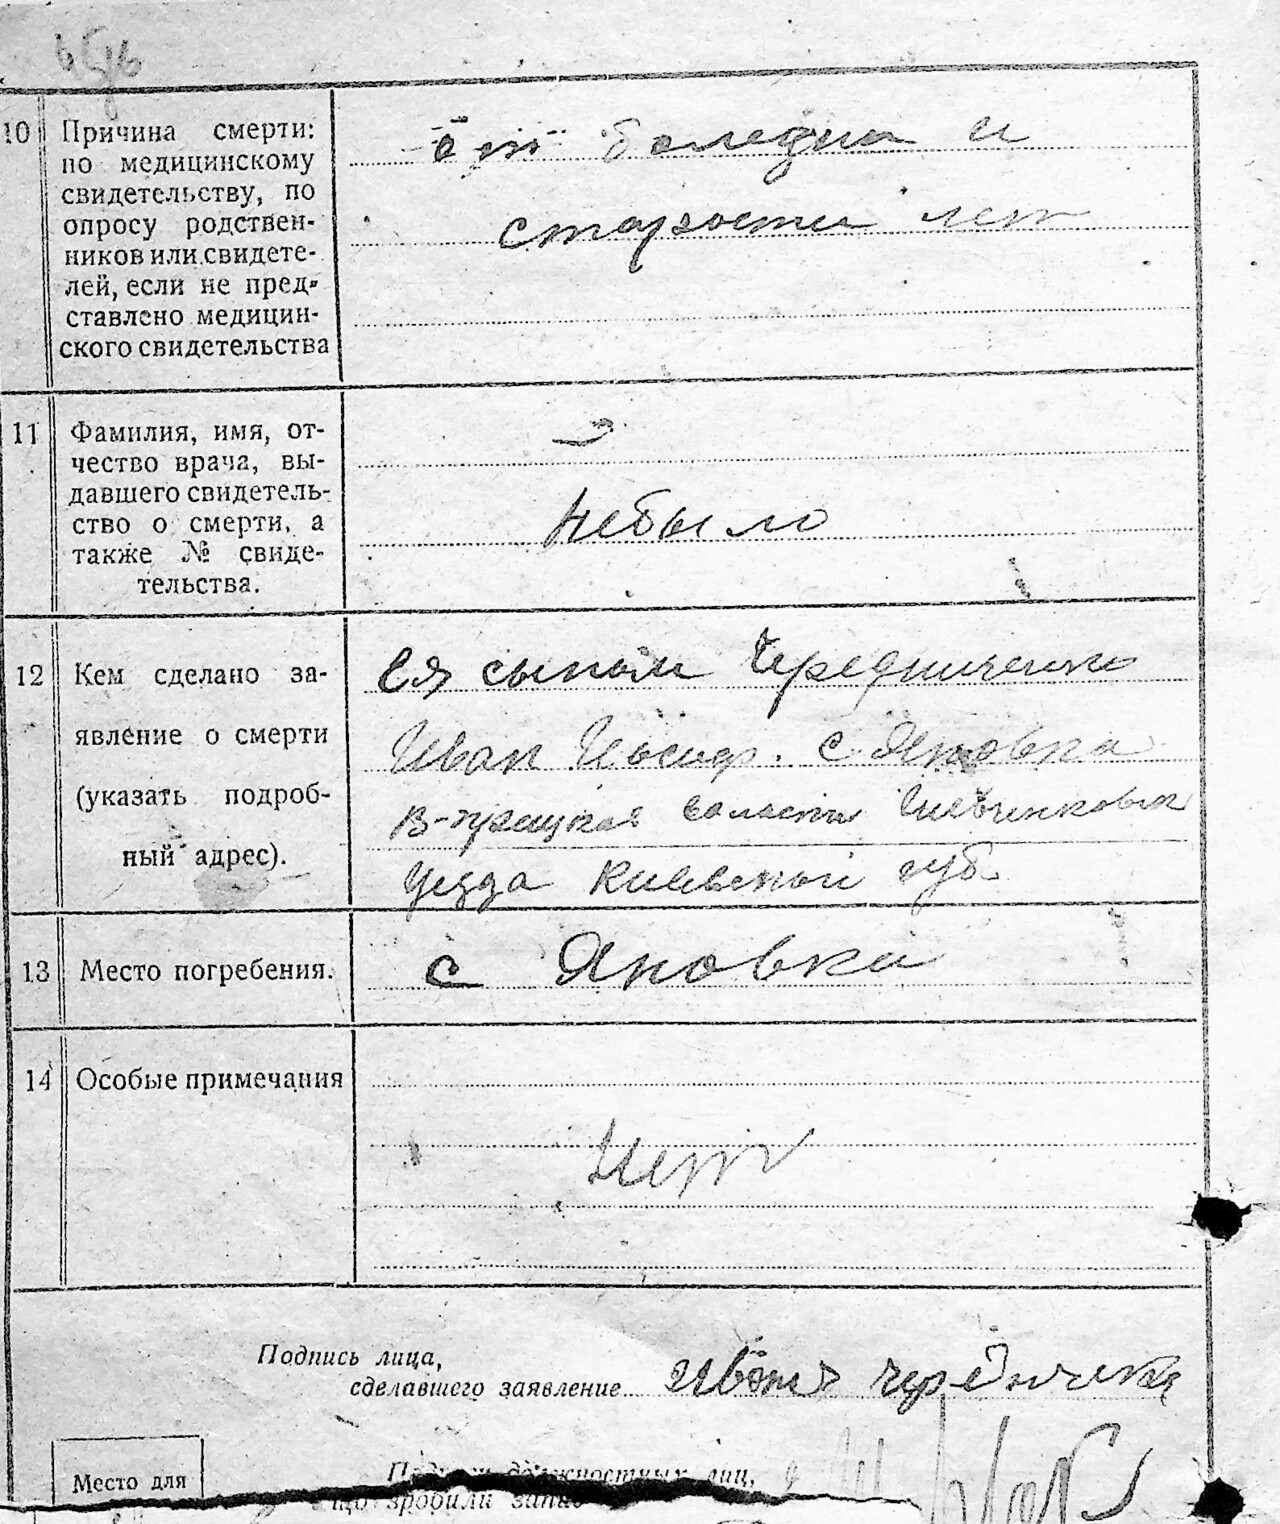 10 Причина смерти:
по медицинскому
свидетельству, по
опросу родствен-
ников или свидете-
лей, если не пред-
ставлено медицин-
ского свидетельства
от болезни и
старости лет
11 Фамилия, имя, от-
чество врача, вы-
давшего свидетель-
ство о смерти, а
также № свиде-
тельства.
небыло
12 Кем сделано за-
явление о смерти
(указать подроб-
ный адрес).
Ея сыном Чередниченко
Иван Иосиф. с Яновка
волости
уезда Киевской губ.
13 Место погребения.
с Яновка
14 Особые примечания
Нет
Подпись лица,
сделавшего заявление
Место для
должностных лиц,
що зробили